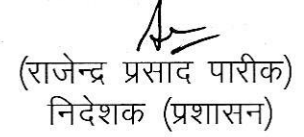 (राजेन्द्र प्रसाद पारीक)
निदेशक (प्रशासन)